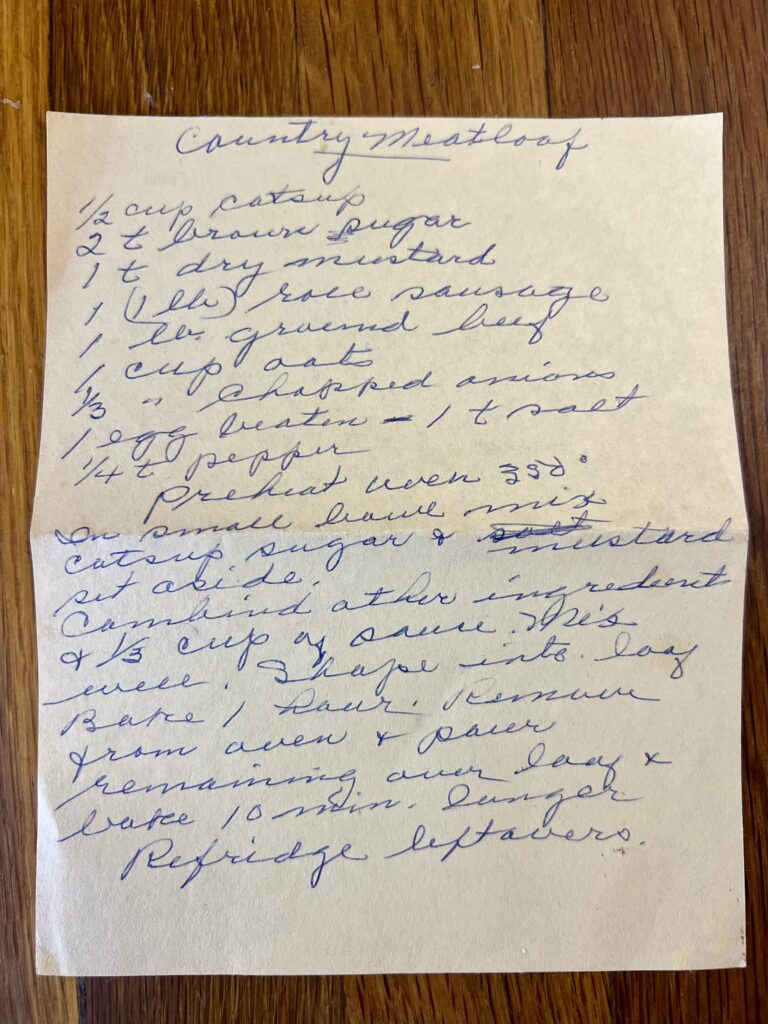 Country Meatloaf
1/2 cup catsup
2 t brown sugar
1 t dry mustard
1 (1 lb) roll sausage
1 lb. ground beef
1 cup oats
1/3 " chopped onions
1 egg beaten - 1 t salt
1/4 t pepper
Preheat oven 350°
In small bowl mix
catsup sugar & salt mustard
set aside.
Combind other ingredients
& 1/3 cup of sauce. Mix
well. Shape into loaf
Bake 1 hour. Remove
from oven & pour
remaining over loaf &
bake 10 min. longer
Refridge leftovers.